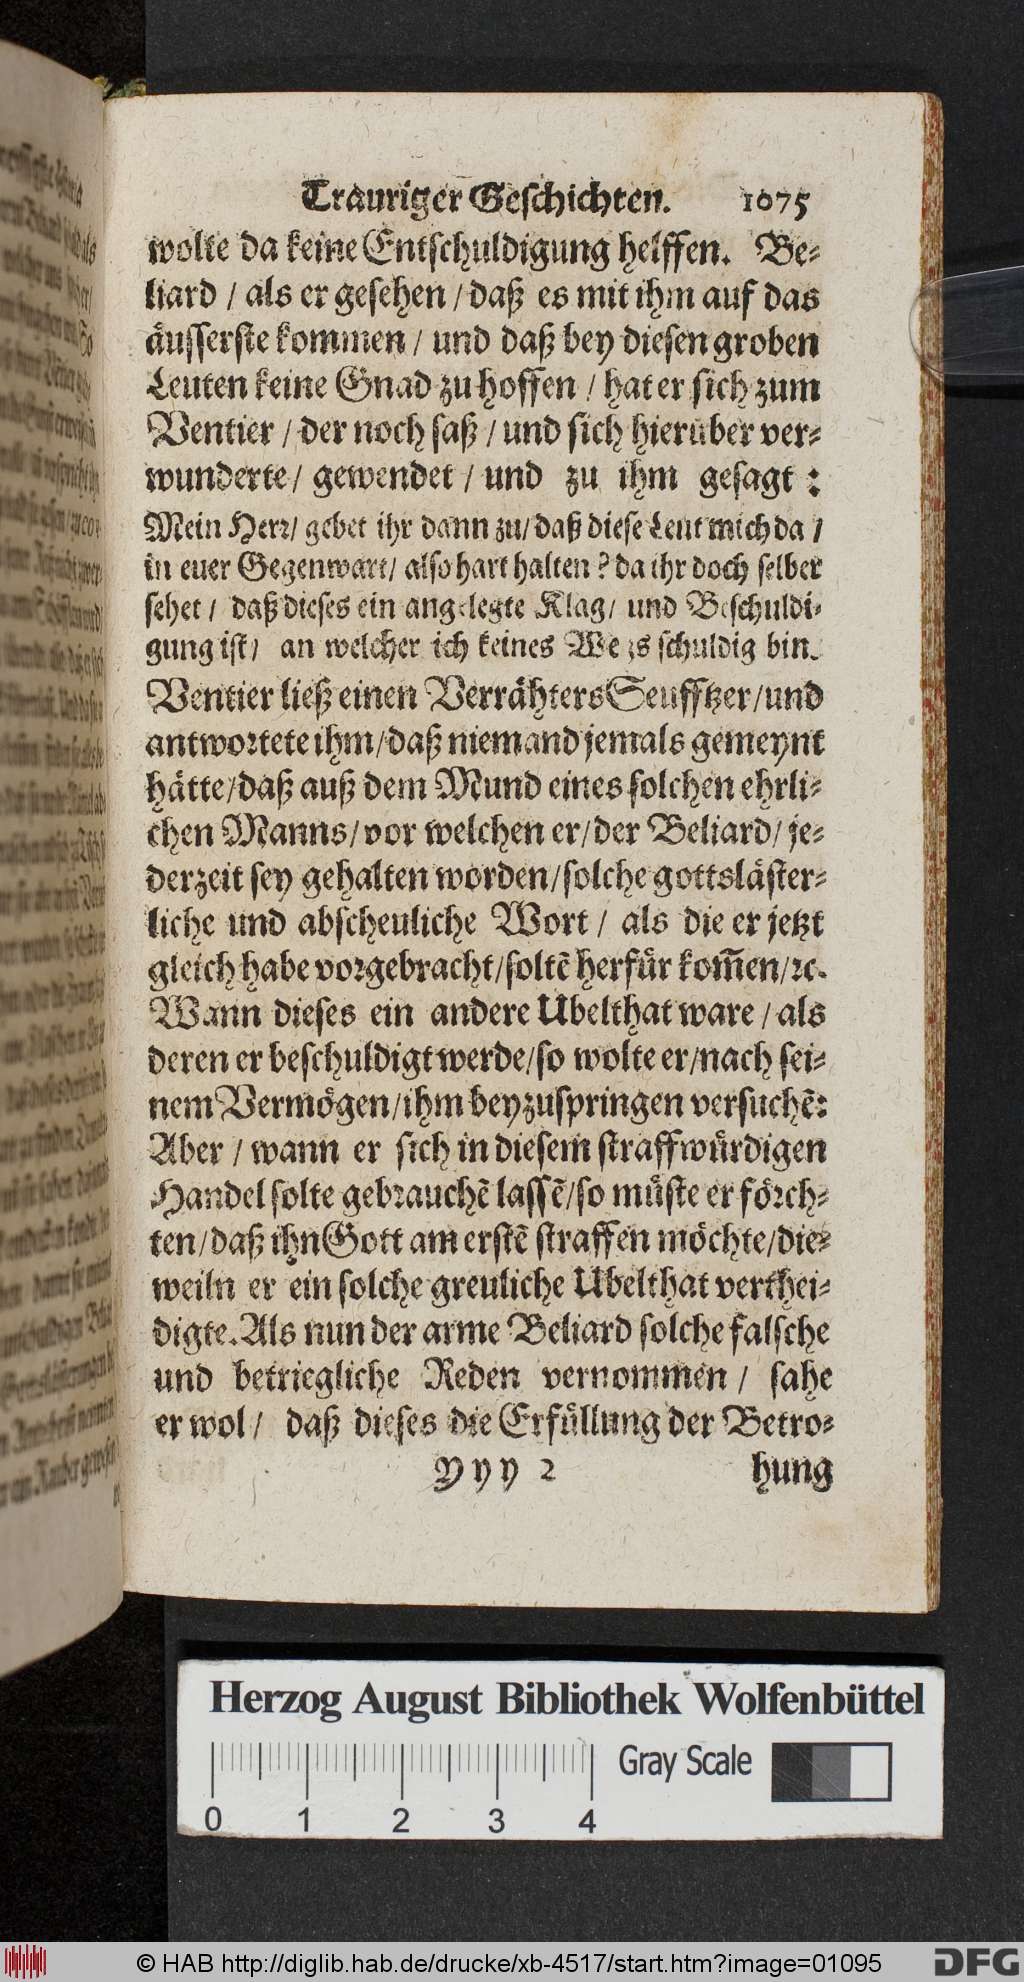 Trauriger Geſchichten. 1075
wolte da keine Entſchuldigung helffen. Be-
liard / als er geſehen / daß es mit ihm auf das
äuſſerſte kommen / und daß bey dieſen groben
Leuten keine Gnad zu hoffen / hat er ſich zum
Ventier / der noch ſaß / und ſich hierüber ver-
wunderte / gewendet / und zu ihm geſagt :
Mein Herr / gebet ihr dann zu / daß dieſe Leut mich da /
in euer Gegenwart / alſo hart halten ? da ihr doch ſelber
ſehet / daß dieſes ein angelegte Klag / und Beſchuldi-
gung iſt / an welcher ich keines Weegs ſchuldig bin.
Ventier ließ einen Verrähters Seufftzer / und
antwortete ihm / daß niemand jemals gemeynt
hätte / daß auß dem Mund eines ſolchen ehrli-
chen Manns / vor welchen er / der Beliard / je-
derzeit ſey gehalten worden / ſolche gottsläſter-
liche und abſcheuliche Wort / als die er jetzt
gleich habe vorgebracht / ſoltẽ herfür kom̃en / ꝛc.
Wann dieſes ein andere Ubelthat ware / als
deren er beſchuldigt werde / ſo wolte er / nach ſei-
nem Vermögen / ihm beyzuſpringen verſuchẽ:
Aber / wann er ſich in dieſem ſtraffwürdigen
Handel ſolte gebrauchẽ laſſẽ / ſo müſte er förch-
ten / daß ihn Gott am erſtẽ ſtraffen möchte / die-
weiln er ein ſolche greuliche Ubelthat verthei-
digte. Als nun der arme Beliard ſolche falſche
und betriegliche Reden vernommen / ſahe
er wol / daß dieſes die Erfüllung der Betro-
Yyy 2 hung
Herzog August Bibliothek Wolfenbüttel
Gray Scale
0 1 2 3 4
© HAB http://diglib.hab.de/drucke/xb-4517/start.htm?image=01095
DFG